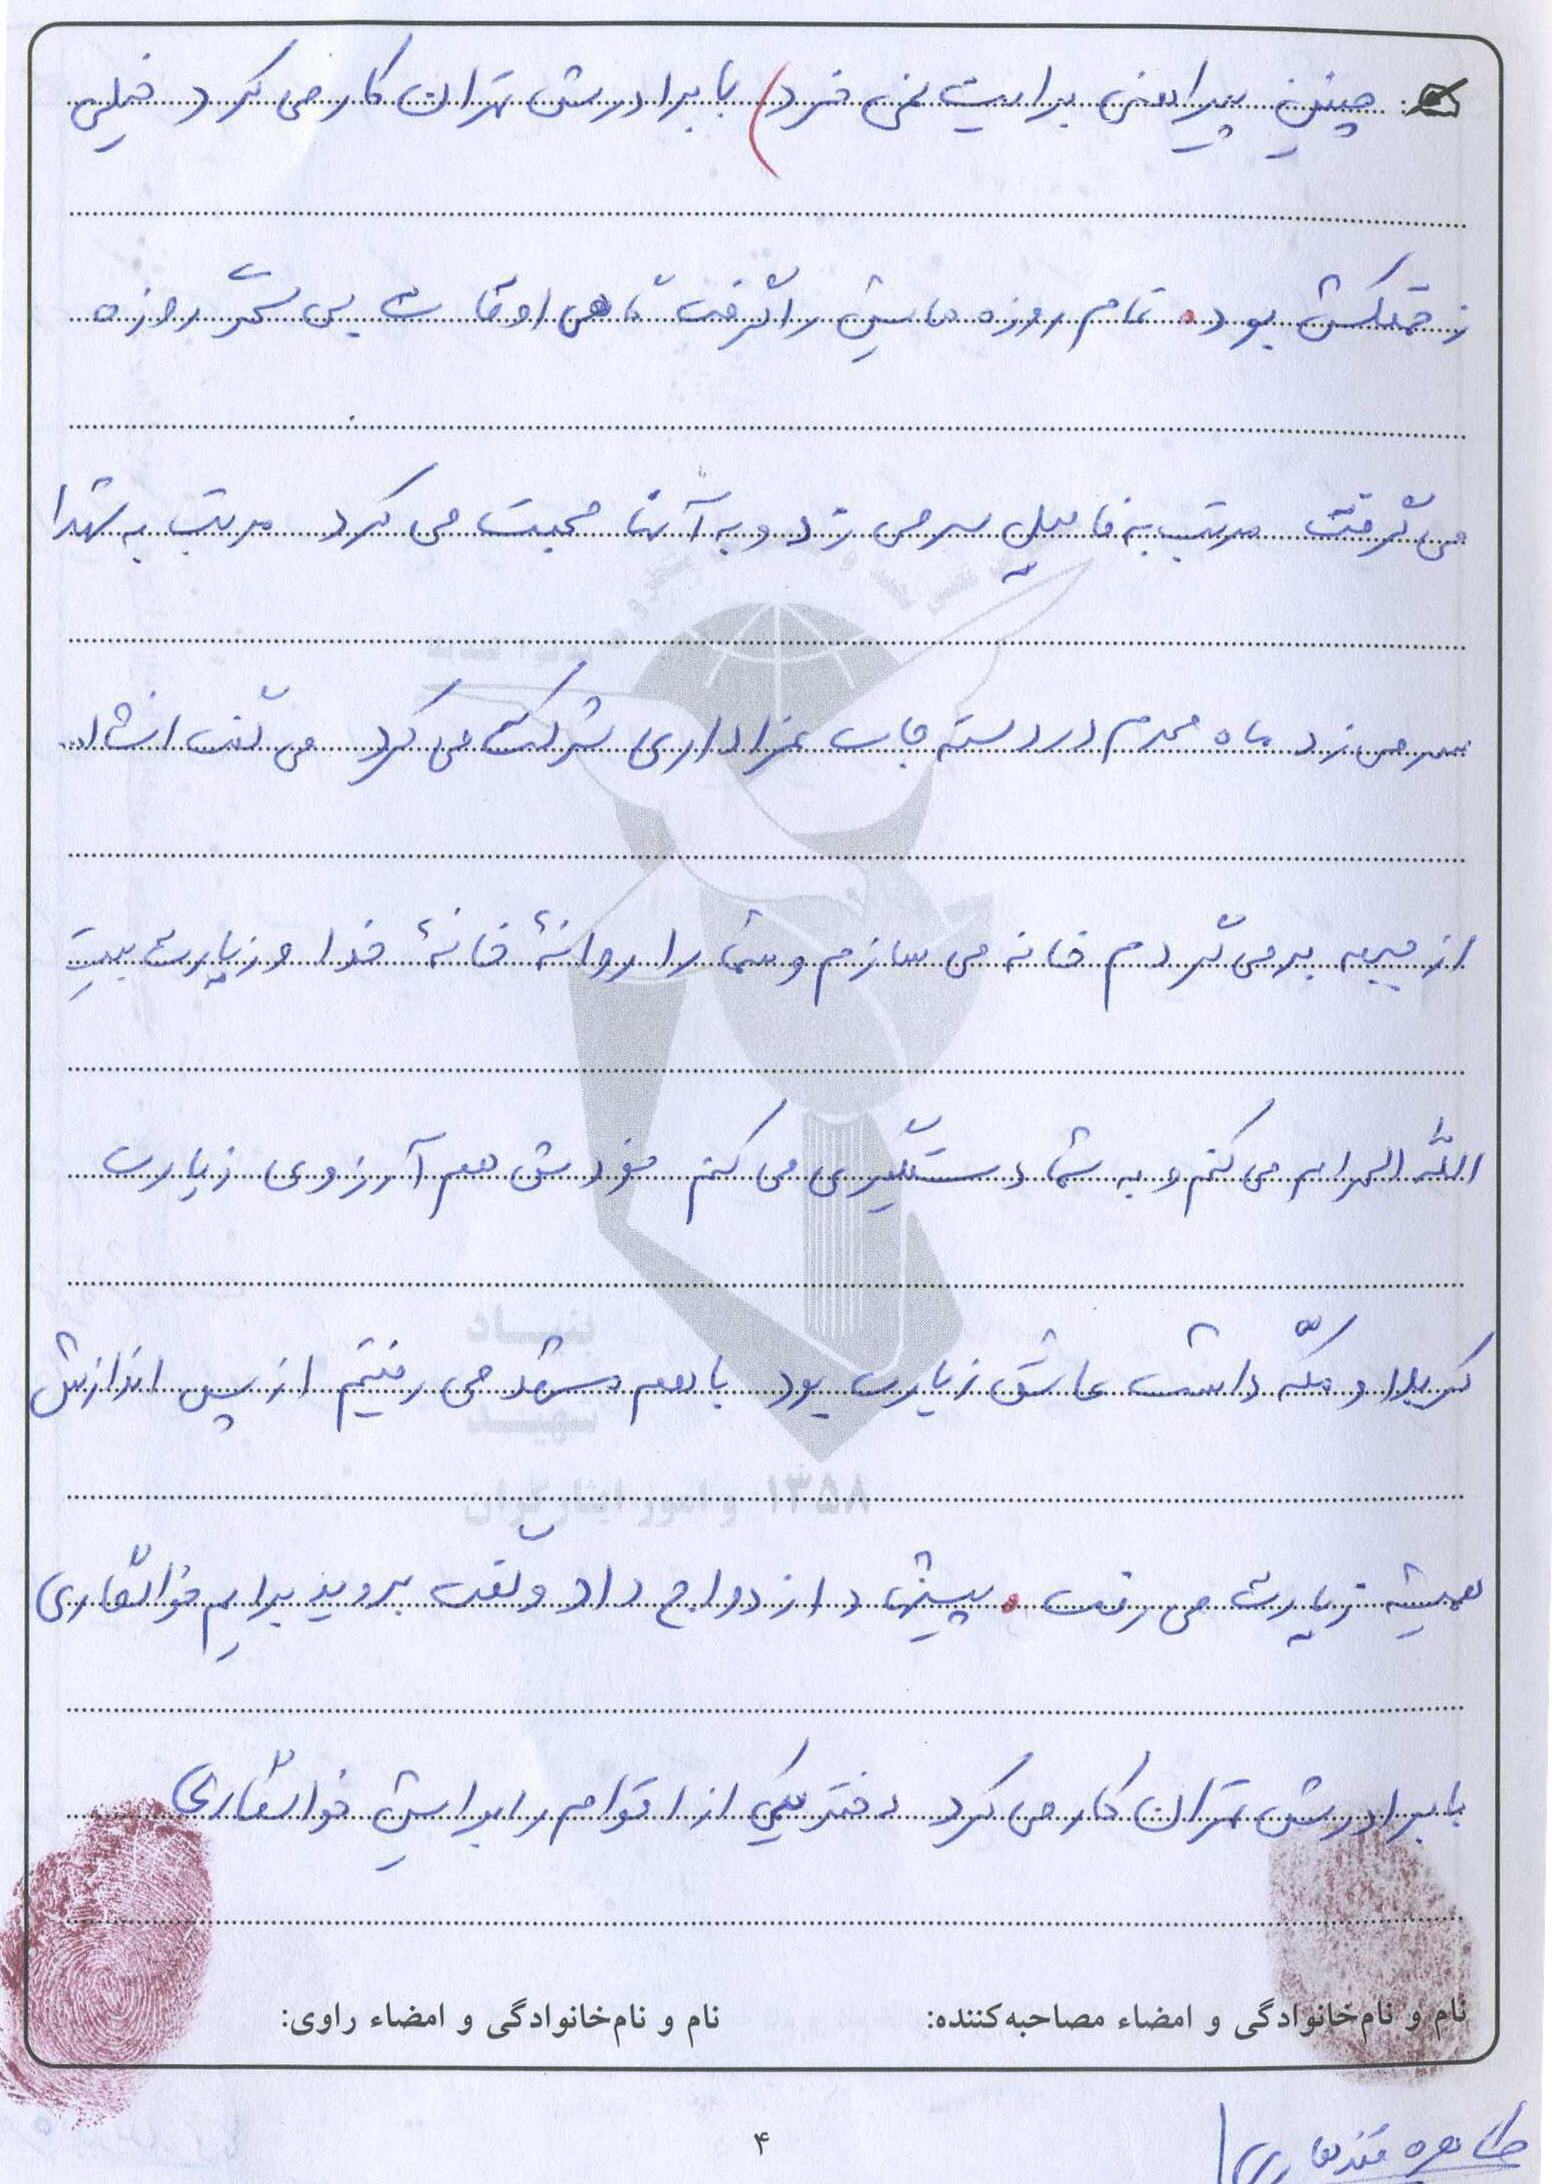 چنین پیراهنی برایت نمی خرد) با برادرش تهران کار می کرد خیلی
زحمتکش بود. تمام روزه هایش را گرفت گاهی اوقات بی سحر روزه
می گرفت مرتب به فامیل سر می زد و به آنها محبت می کرد مرتب به شهدا
سر می زد ماه محرم در دسته جات عزاداری شرکت می کرد می گفت انشاا...
از جبهه برمی گردم خانه می سازم و شما را روانهٔ خانهٔ خدا و زیارت بیت
اللّه الحرام می کنم و به شما دستگیری می کنم خودش هم آرزوی زیارت
کربلا و مکّه داشت عاشق زیارت بود با هم مشهد می رفتیم از پس اندازش
همیشه زیارت می رفت. پیشنهاد ازدواج داد و گفت بروید برایم خواستگاری
با برادرش تهران کار می کرد دختر یکی از اقوام را برایش خواستگاری
نام و نام‌خانوادگی و امضاء مصاحبه‌کننده: نام و نام‌خانوادگی و امضاء راوی:
۴
طاهره قندهاری
بنیاد
شهید
و امور ایثارگران ۱۳۵۸